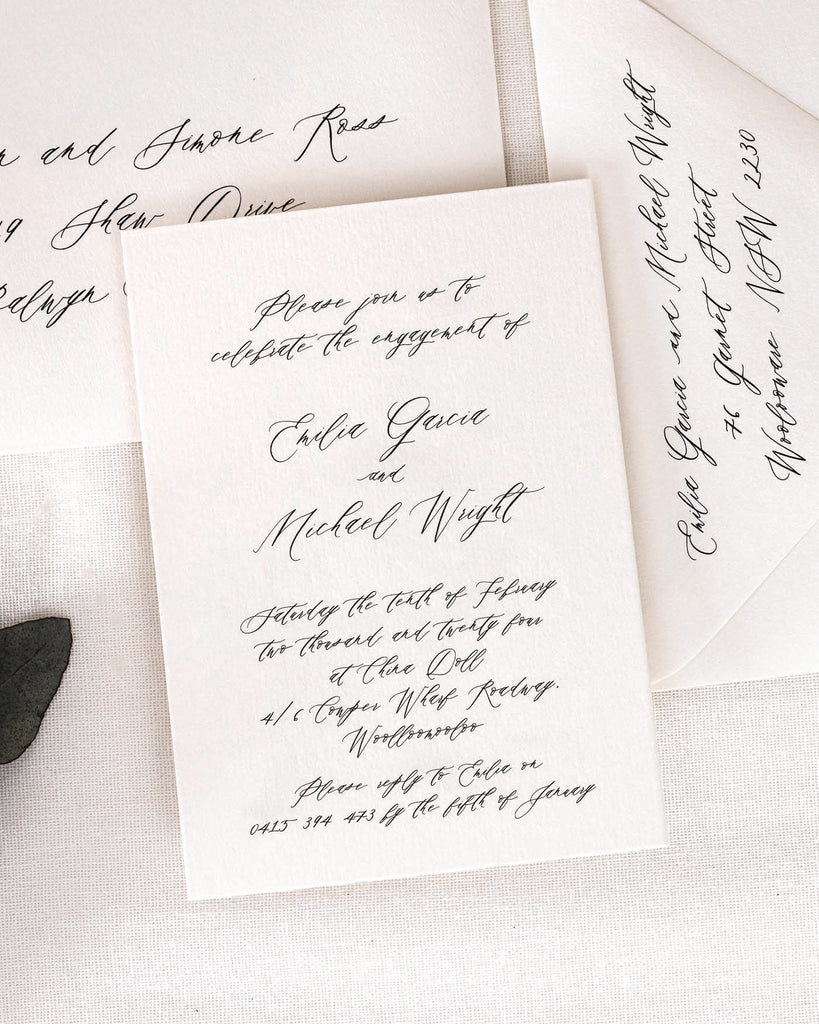 and Simone Ross
Shaw Drive
Balwyn
Please join us to
celebrate the engagement of
Emilia Garcia
and
Michael Wright
Saturday the tenth of February
two thousand and twenty four
at China Doll
4/6 Cowper Wharf Roadway.
Woolloomooloo
Please reply to Emilia on
0415 394 473 by the fifth of January
Emilia Garcia and Michael Wright
76 Garnet Street
Woolooware NSW 2230